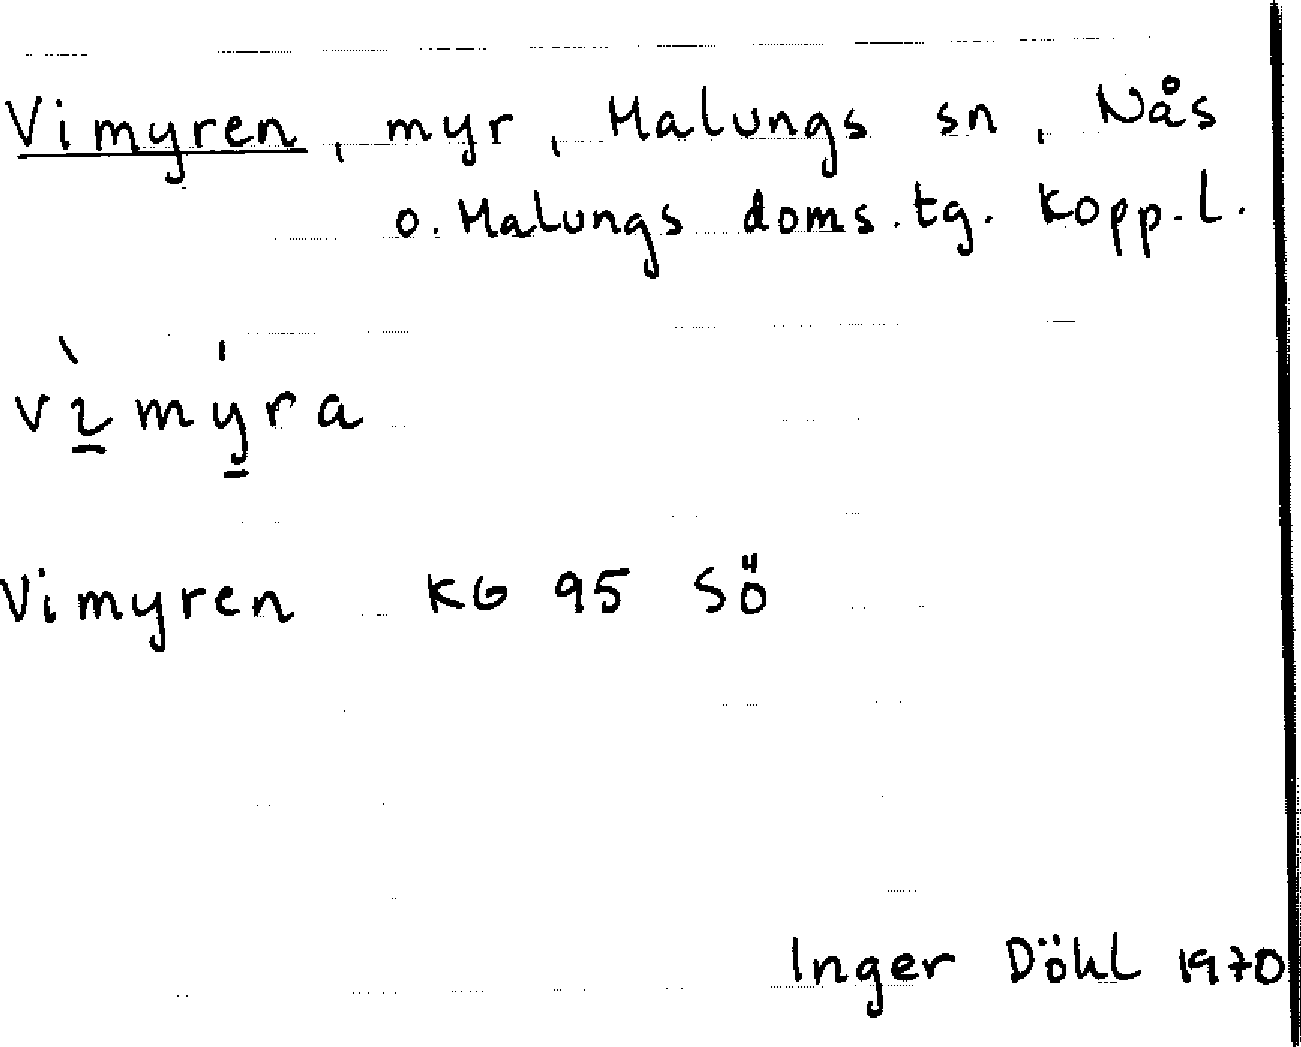 Vimyren, myr, Malungs sn, Nås
o. Malungs doms.tg. Kopp.l.
vɩ̠̀my̠̍ra
Vimyren KG 95 SÖ
Inger Döhl 1970